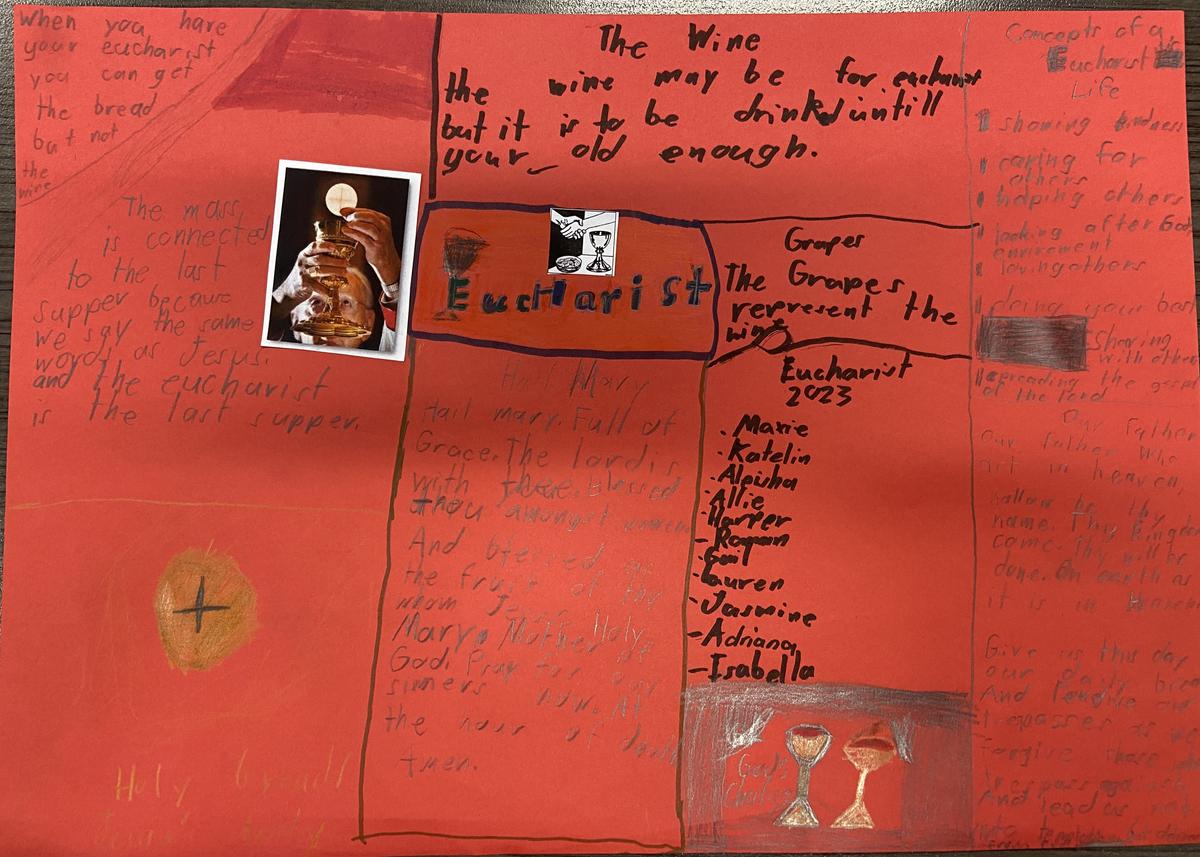 When you have
your eucharist
you can get
the bread
but not
the
wine
The mass,
is connected
to the last
supper because
we say the same
words as Jesus.
and the eucharist
is the last supper.
Holy bread!
The Wine
the wine may be for
but it is to be drinked untill
your old enough.
EucHarist
Grapes
The Grapes
represent the
wine
Hail Mary
Hail mary. Full of
Grace. The lord is
with thee. Blessed
thou amongst women
And blessed
the fruit of thy
womb Jesus. Holy
Mary, Mother of
God. Pray for
sinners now. At
the hour of death
Amen.
Eucharist
2023
. Marie
- Katelin
- Aleisha
- Allie
- Harper
- Rowan
- Gail
- Lauren
- Jasmine
- Adriana
- Isabella
God's
Chalice
Concepts of a
Eucharist
Life
showing kindness
caring for
others
helping others
looking after God
enviroment
loving others
doing your best
Sharing
with others
spreading the
of the lord
Our Father
Our Father Who
art in heaven,
hallow be thy
name. Thy Kingdom
come. Thy will be
done. On earth as
it is in Heaven
Give us this day
our daily bread
And forgive our
trespasses as we
forgive those
trespass against
And lead us not
into temptation